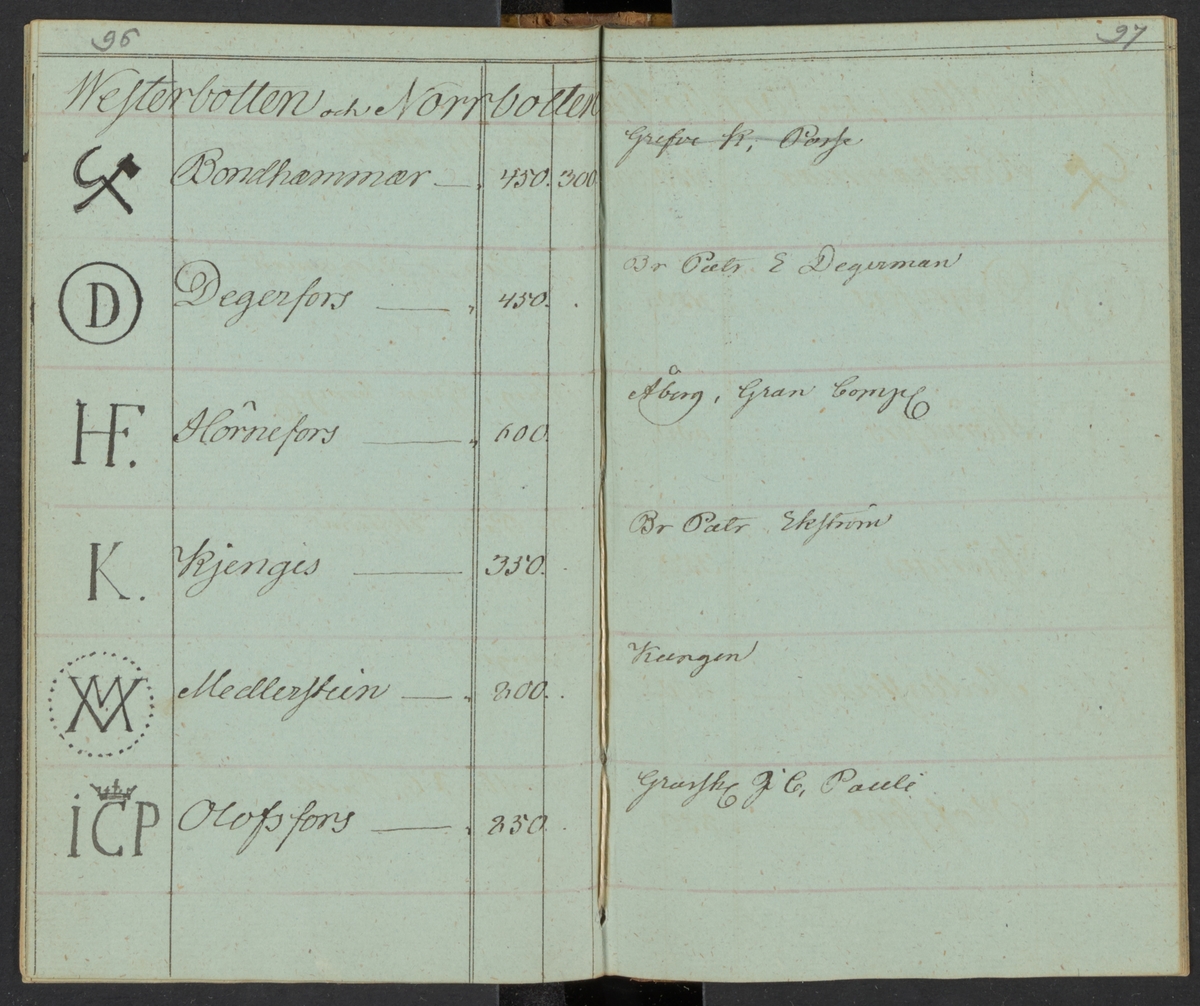 96
97
Westerbotten och Norrbotten
Bondhammar 450. 300
Grefve K, Posse
D
Degerfors 450.
Br Patr E Degerman
HF.
Hörnefors 600.
Åberg, Gran Comp
K.
Kjengis 350.
Br Patr Ekström
Medlerstein 200.
Kungen
ICP
Olofsfors 250.
C, Pauli